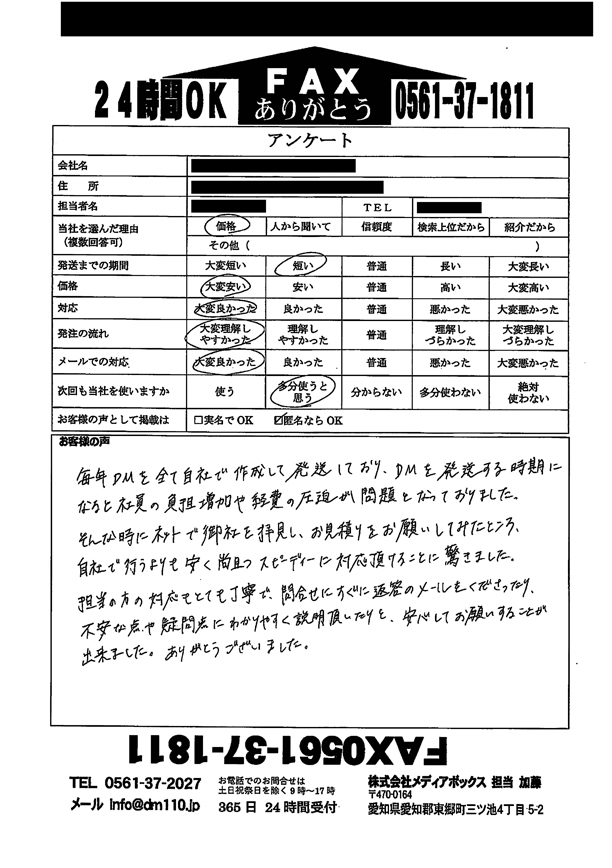 24時間OK
FAX
ありがとう
0561-37-1811
アンケート
会社名
住 所
担当者名 TEL
当社を選んだ理由（複数回答可） 価格 人から聞いて 信頼度 検索上位だから 紹介だから
その他（ ）
発送までの期間 大変短い 短い 普通 長い 大変長い
価格 大変安い 安い 普通 高い 大変高い
対応 大変良かった 良かった 普通 悪かった 大変悪かった
発注の流れ 大変理解しやすかった 理解しやすかった 普通 理解しづらかった 大変理解しづらかった
メールでの対応 大変良かった 良かった 普通 悪かった 大変悪かった
次回も当社を使いますか 使う 多分使うと思う 分からない 多分使わない 絶対使わない
お客様の声として掲載は □実名でOK ☑匿名ならOK
お客様の声
毎年DMを全て自社で作成して発送しており、DMを発送する時期に
なると社員の負担増加や経費の圧迫が問題となっておりました。
そんな時にネットで御社を拝見し、お見積りをお願いしてみたところ、
自社で行うよりも安く尚且つスピーディーに対応頂けることに驚きました。
担当の方の対応もとても丁寧で、問合せにすぐに返答のメールをくださったり、
不安な点や疑問点にわかりやすく説明頂いたりと、安心してお願いすることが
出来ました。ありがとうございました。
FAX0561-37-1811
TEL 0561-37-2027 お電話でのお問合せは 株式会社メディアボックス 担当 加藤
土日祝祭日を除く9時〜17時 〒470-0164
メール info@dm110.jp 365日 24時間受付 愛知県愛知郡東郷町三ツ池4丁目5-2